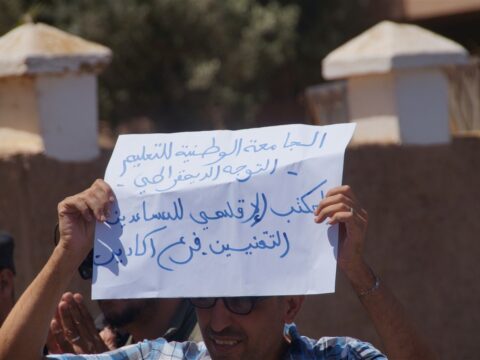 الجامعة الوطنية للتعليم
- التوجه الديمقراطي -
المكتب الإقليمي للمساعدين
التقنيين فرع أكادير